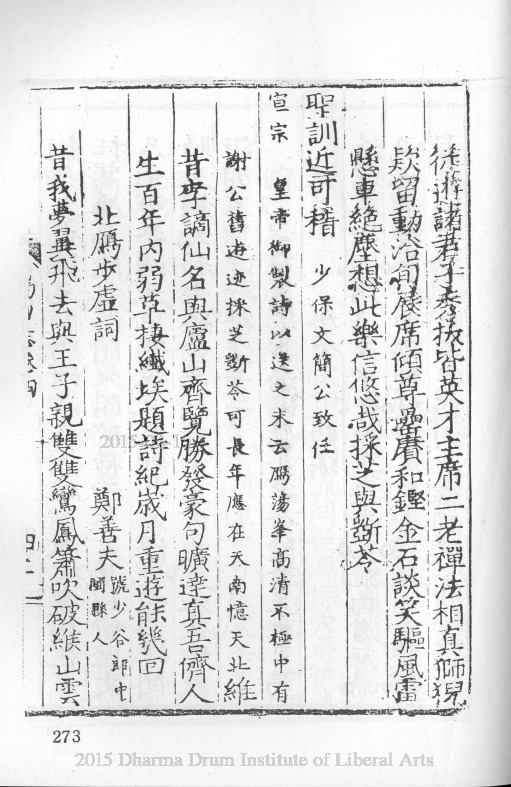 諸君子秀拔皆英才主席二老禪法相真獅猊
款留動洽旬展席傾尊罍賡和鏗金石談笑驅風雷
懸車絶塵想此樂信悠哉採芝與斲苓
聖訓近可稽少保文簡公致仕
宣宗皇帝御製詩以送之末云鴈蕩峯高清不極中有
謝公舊遊迹採芝斲苓可長年應在天南憶天北維
昔李謫仙名與廬山齊覽勝發豪句曠達真吾儕人
生百年内弱草棲纖埃題詩紀歲月重遊能幾回
北鴈步虛詞 鄭善夫號少谷郎中閩縣人
昔我夢翼飛去與王子親雙雙鸞鳳簫吹破緱山雲
273
2015 Dharma Drum Institute of Liberal Arts